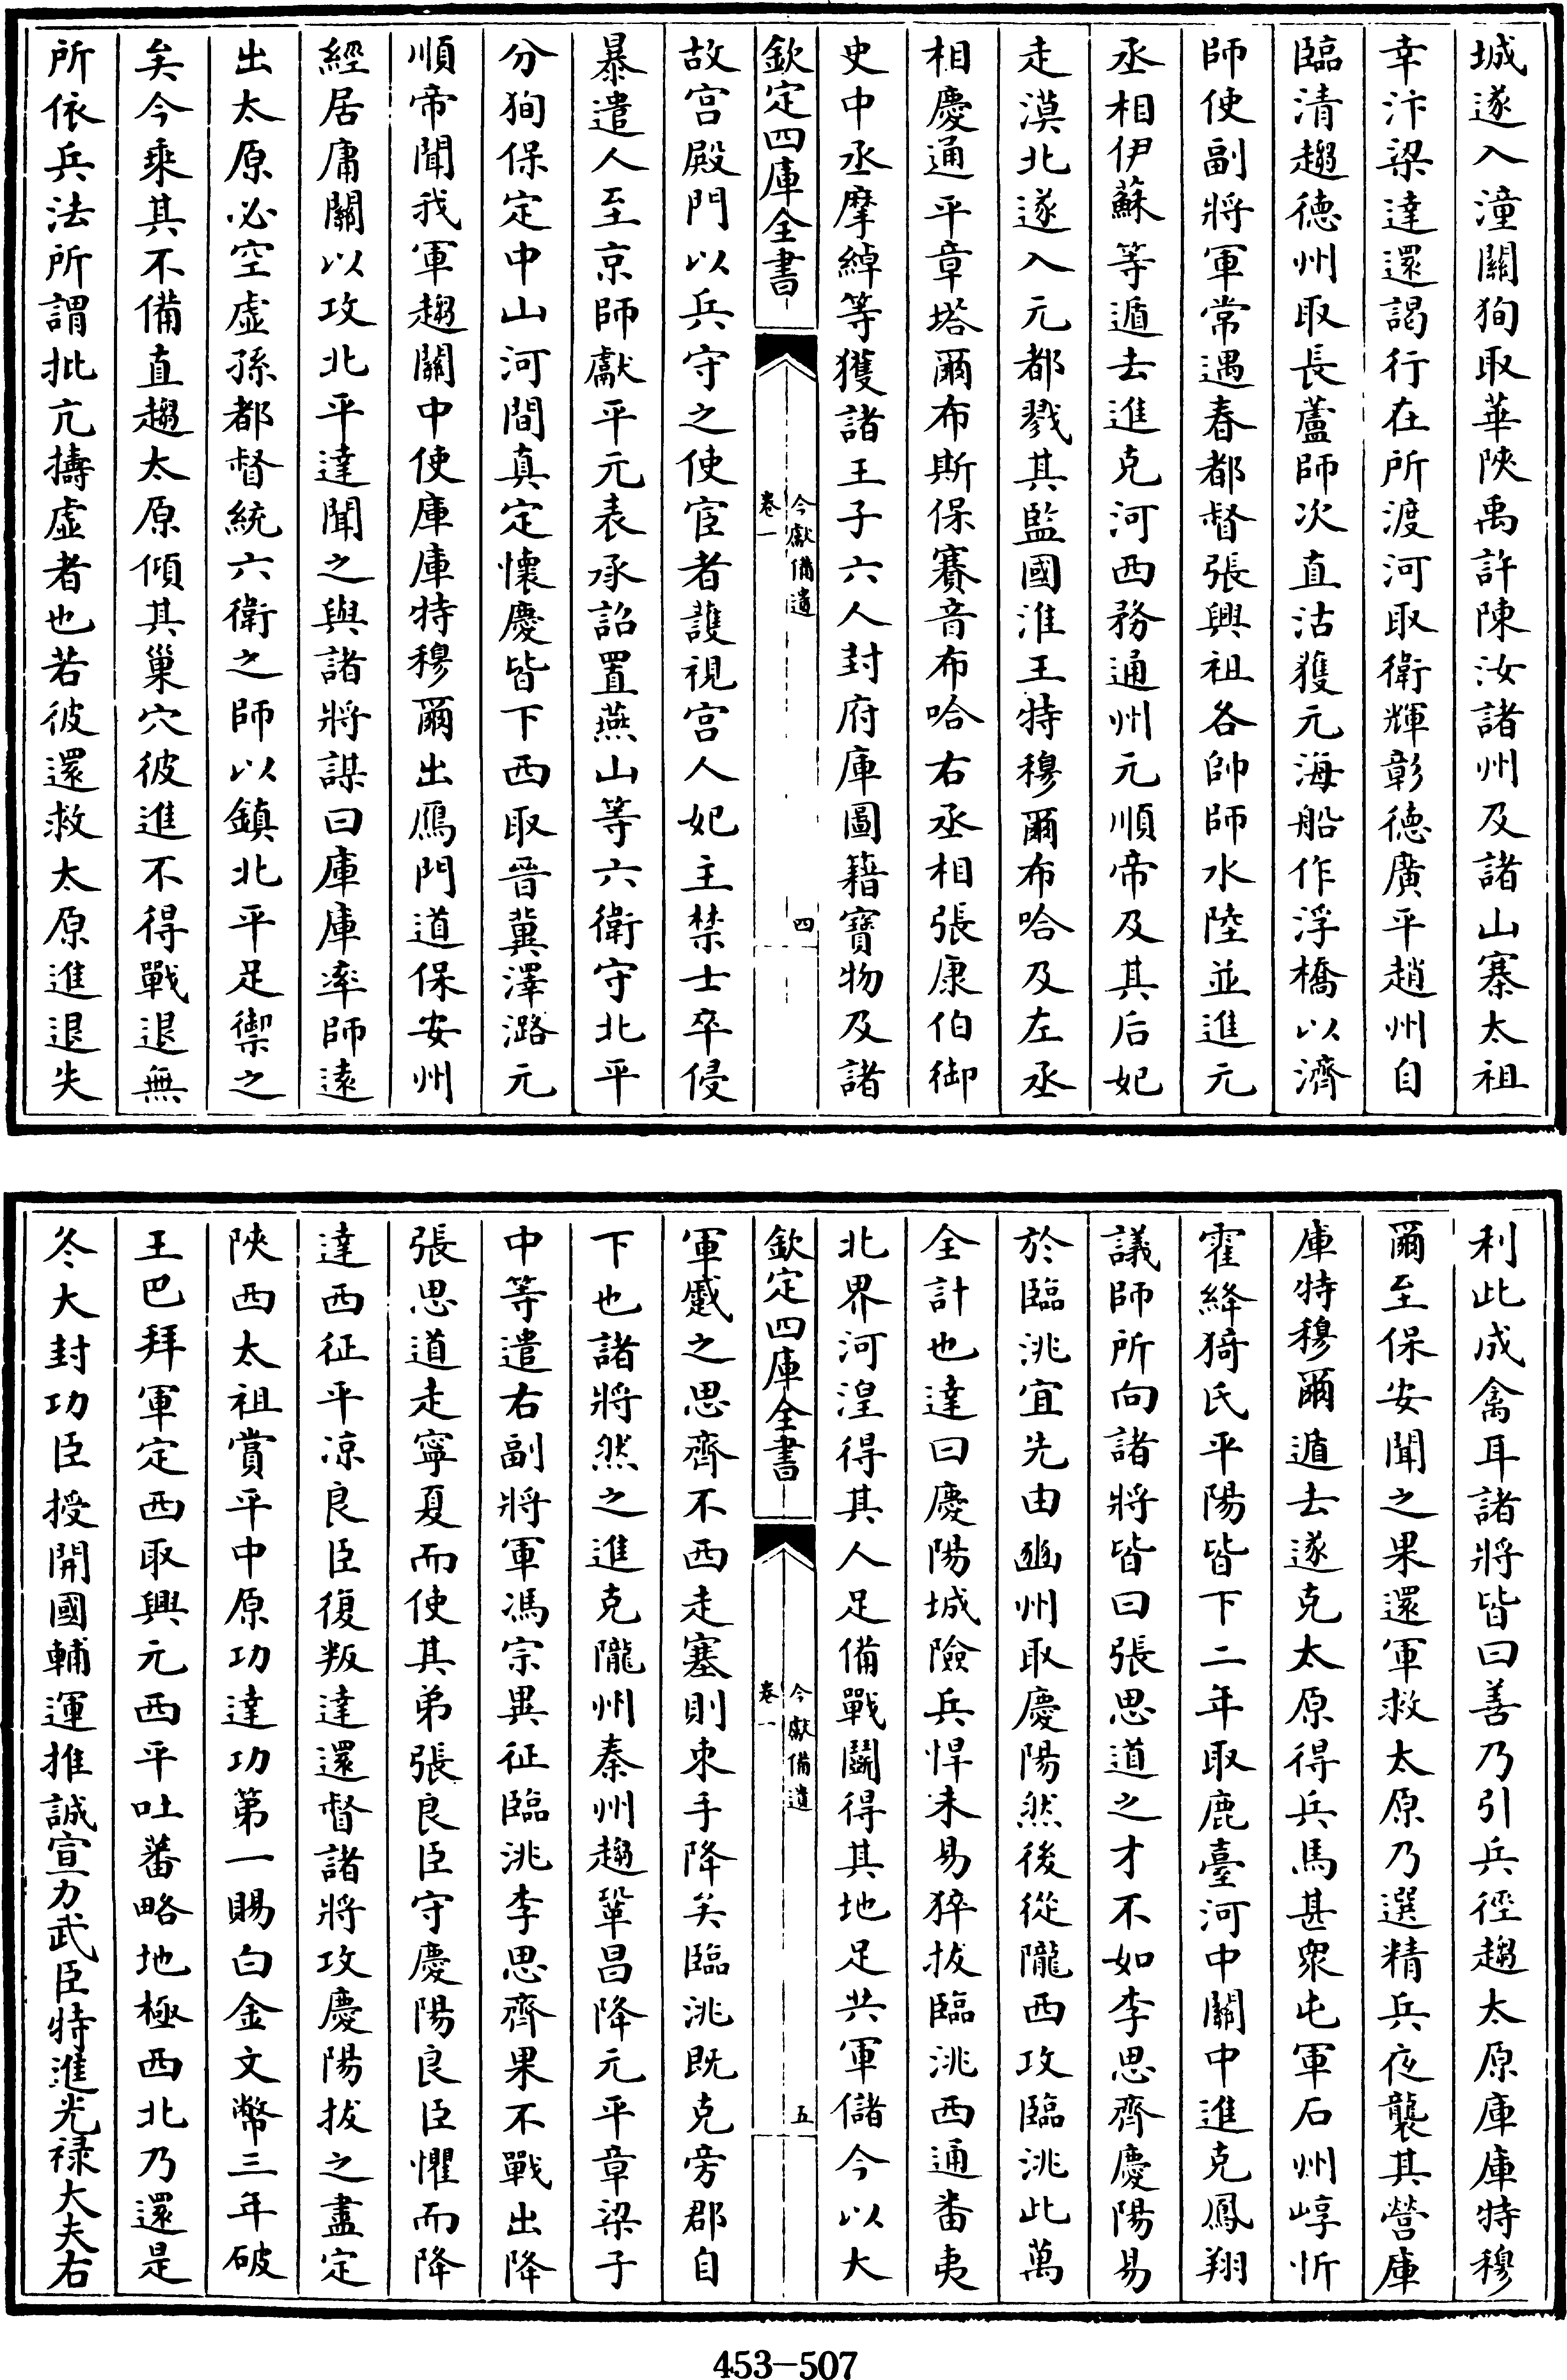 城遂入潼關狥取華陝禹許陳汝諸州及諸山寨太祖
幸汴梁達還謁行在所渡河取衛輝彰德廣平趙州自
臨清趨德州取長蘆師次直沽獲元海船作浮橋以濟
師使副將軍常遇春都督張興祖各帥師水陸並進元
丞相伊蘇等遁去進克河西務通州元順帝及其后妃
走漠北遂入元都戮其監國淮王特穆爾布哈及左丞
相慶通平章塔爾布斯保賽音布哈右丞相張康伯御
史中丞摩綽等獲諸王子六人封府庫圖籍寶物及諸
欽定四庫全書
今獻備遺
卷一
四
故宫殿門以兵守之使宦者護視宫人妃主禁士卒侵
暴遣人至京師獻平元表承詔置燕山等六衛守北平
分狥保定中山河間真定懷慶皆下西取晉冀澤潞元
順帝聞我軍趨關中使庫庫特穆爾出鴈門道保安州
經居庸關以攻北平達聞之與諸將謀曰庫庫率師遠
出太原必空虛孫都督統六衛之師以鎮北平足禦之
矣今乘其不備直趨太原傾其巢穴彼進不得戰退無
所依兵法所謂批亢擣虛者也若彼還救太原進退失
利此成禽耳諸將皆曰善乃引兵徑趨太原庫庫特穆
爾至保安聞之果還軍救太原乃選精兵夜襲其營庫
庫特穆爾遁去遂克太原得兵馬甚衆屯軍石州崞忻
霍絳猗氏平陽皆下二年取鹿臺河中關中進克鳳翔
議師所向諸將皆曰張思道之才不如李思齊慶陽易
於臨洮宜先由豳州取慶陽然後從隴西攻臨洮此萬
全計也達曰慶陽城險兵悍未易猝拔臨洮西通畨夷
北界河湟得其人足備戰鬭得其地足共軍儲今以大
欽定四庫全書
今獻備遺
卷一
五
軍蹙之思齊不西走塞則束手降矣臨洮既克旁郡自
下也諸將然之進克隴州秦州趨鞏昌降元平章梁子
中等遣右副將軍馮宗異征臨洮李思齊果不戰出降
張思道走寧夏而使其弟張良臣守慶陽良臣懼而降
達西征平凉良臣復叛達還督諸將攻慶陽拔之盡定
陝西太祖賞平中原功達功第一賜白金文幣三年破
王巴拜軍定西取興元西平吐蕃略地極西北乃還是
冬大封功臣授開國輔運推誠宣力武臣特進光禄大夫右
453-507